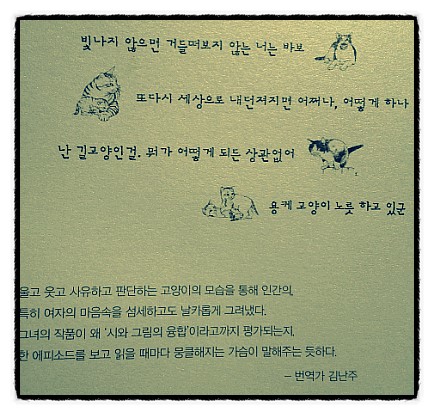 빛나지 않으면 거들떠보지 않는 너는 바보
또다시 세상으로 내던져지면 어쩌나, 어떻게 하나
난 길고양인걸. 뭐가 어떻게 되든 상관없어
용케 고양이 노릇 하고 있군
울고 웃고 사유하고 판단하는 고양이의 모습을 통해 인간의,
특히 여자의 마음속을 섬세하고도 날카롭게 그려냈다.
그녀의 작품이 왜 '시와 그림의 융합'이라고까지 평가되는지,
한 에피소드를 보고 읽을 때마다 뭉클해지는 가슴이 말해주는 듯하다.
– 번역가 김난주